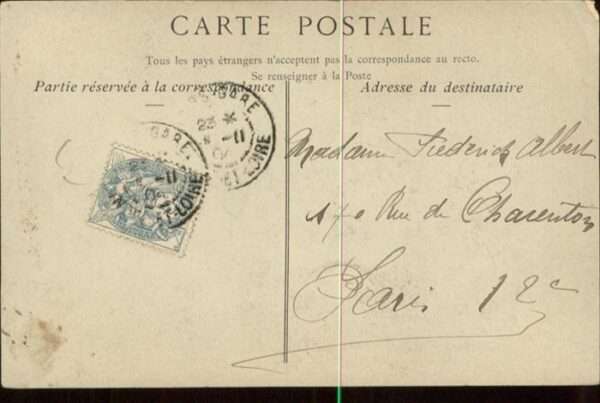 CARTE POSTALE
Tous les pays étrangers n'acceptent pas la correspondance au recto.
Se renseigner à la Poste
Partie réservée à la correspondance
Adresse du destinataire
GARE
23 *
11
ET-LOIRE
GARE
11
ET-LOIRE
Madame Frederick Albert
170 Rue de Charenton
Paris 12e